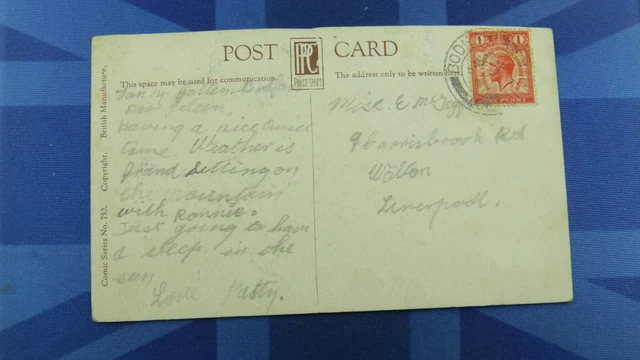 POST CARD
This space may be used for communication.
The address only to be written here.
British Manufacture.
Copyright.
Comic Series No. 753.
Dear Eileen,
Having a nice quiet
time. Weather is
grand Sitting on
the mountain
with Ronnie.
Just going to have
a sleep in the
sun
Love Patty.
Miss. E
9 Rd
Walton
Liverpool.
1 1
ONE PENNY
BOD